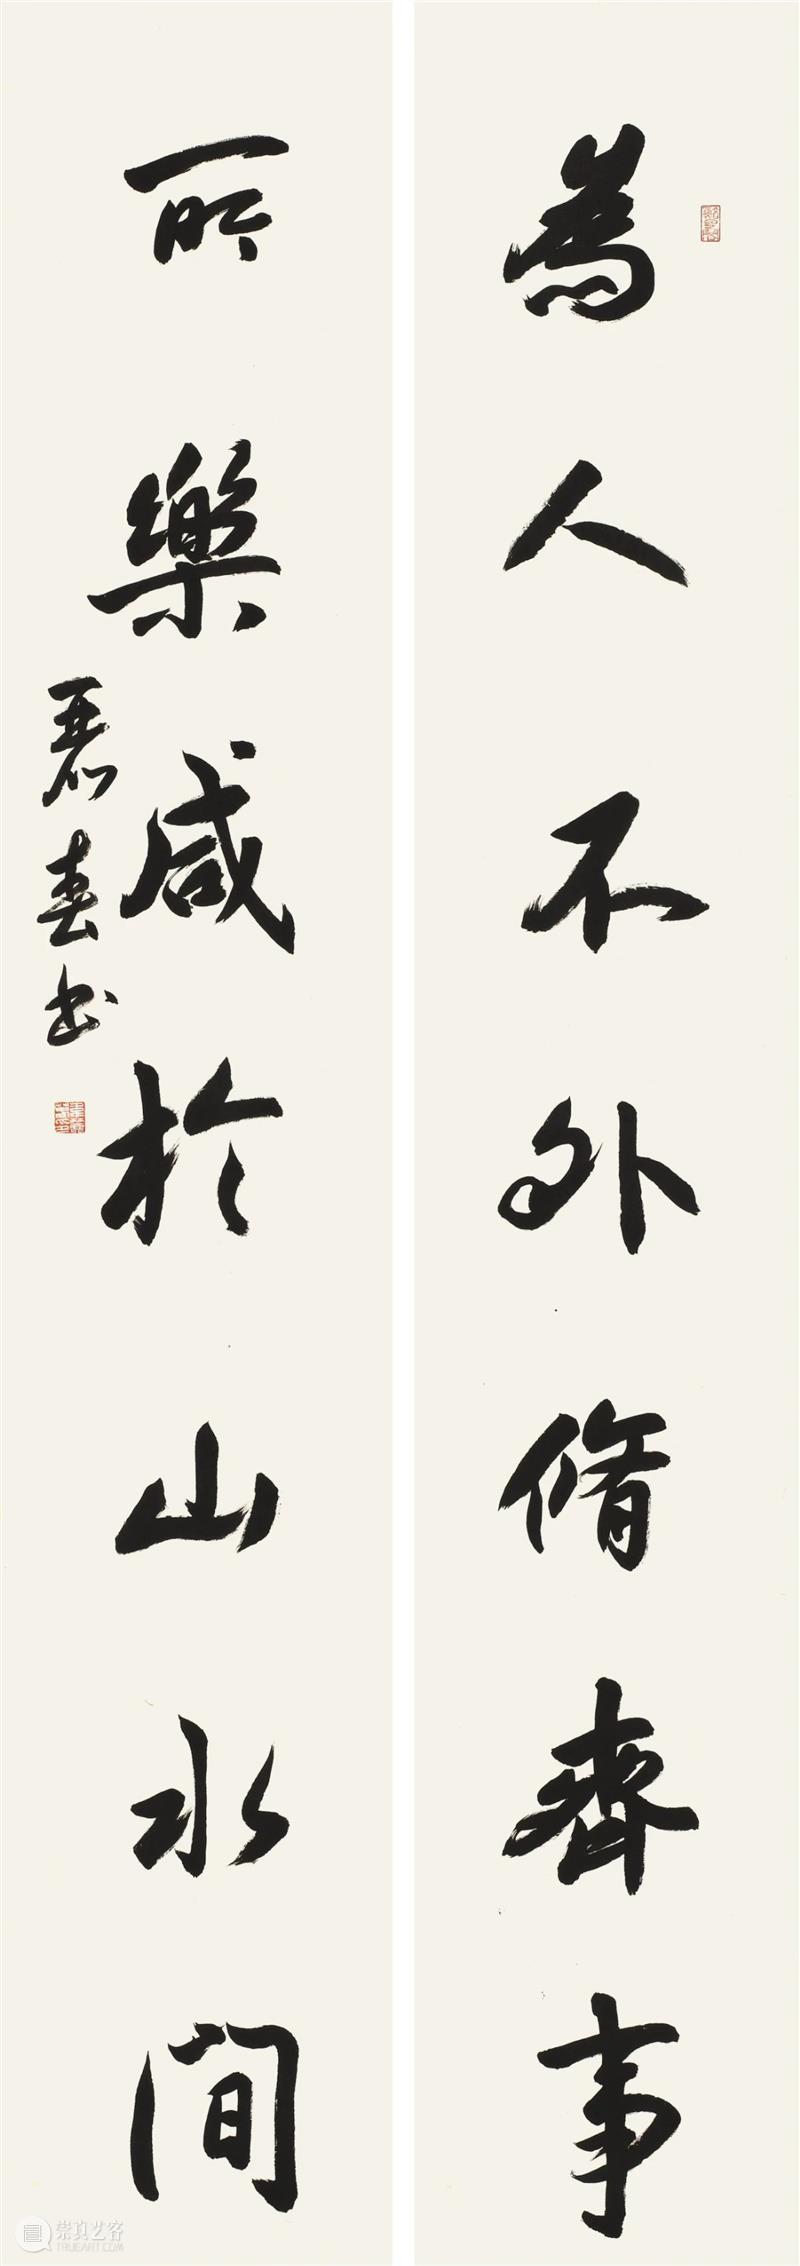 為人不外脩齊事
所樂咸於山水間
春書
崇真艺客
TRUEART.COM